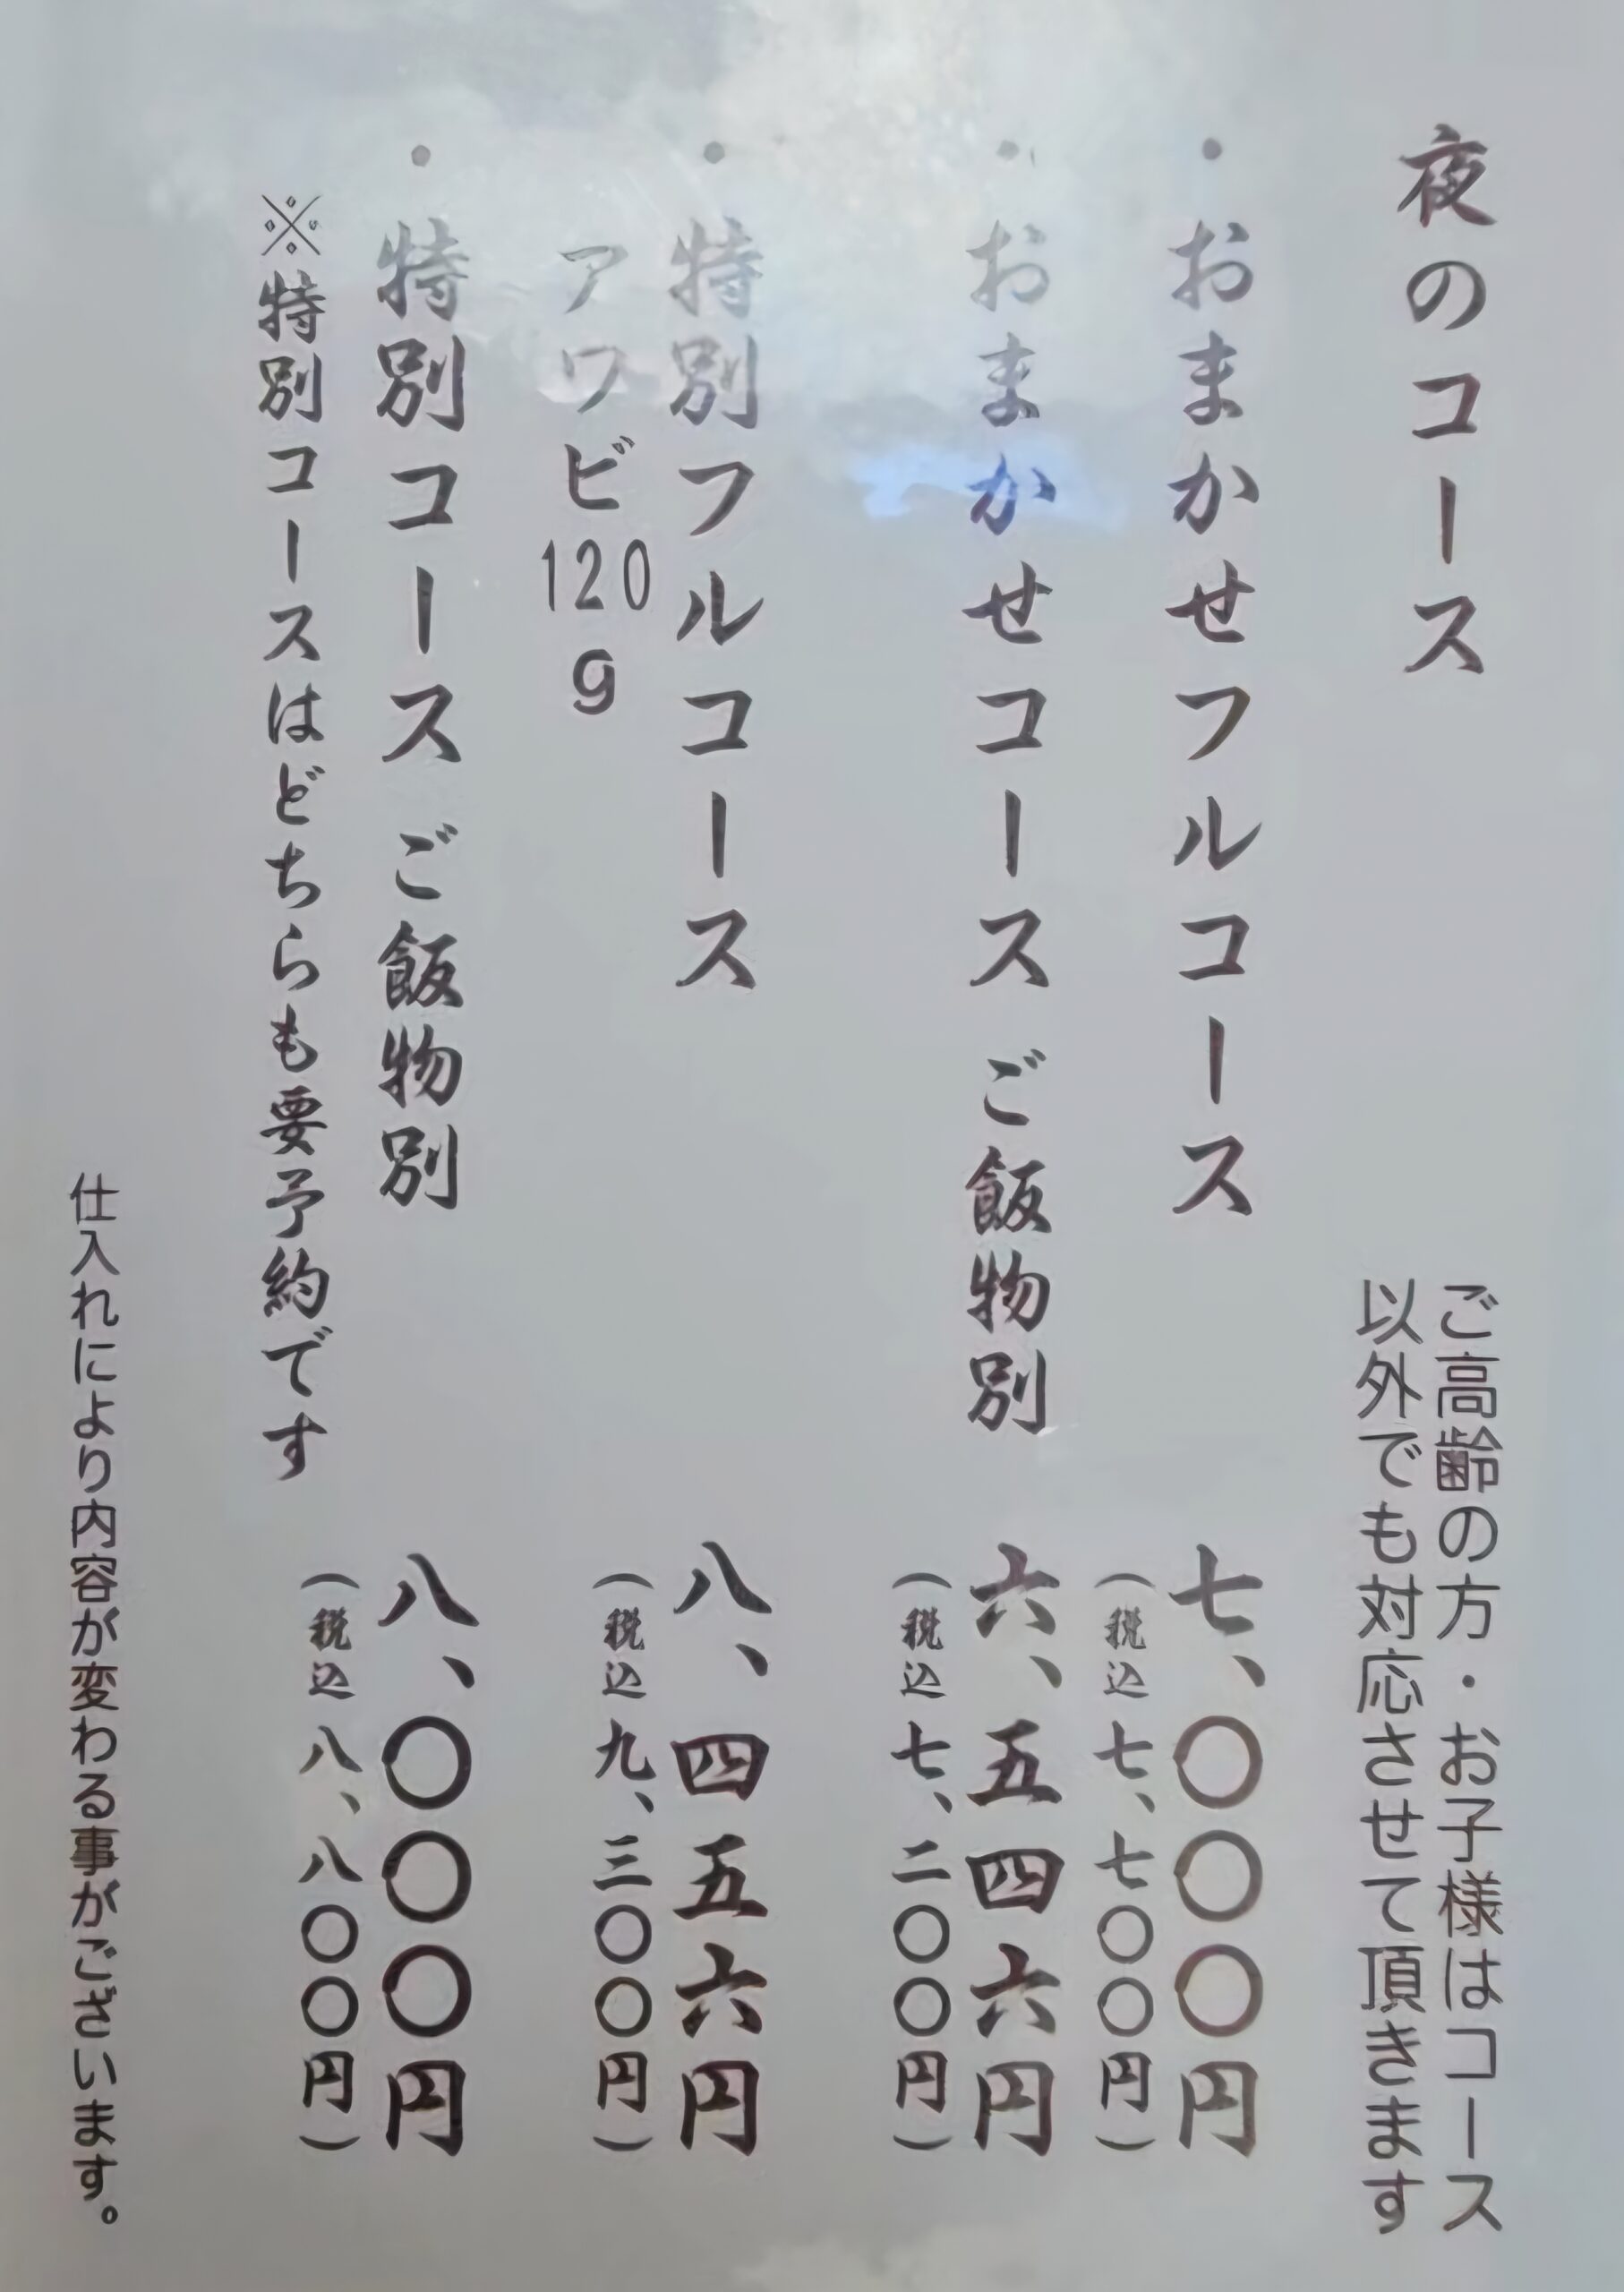 夜のコース
ご高齢の方・お子様はコース
以外でも対応させて頂きます
・おまかせフルコース 七、〇〇〇円
(税込 七、七〇〇円)
・おまかせコース ご飯物別 六、五四六円
(税込 七、二〇〇円)
・特別フルコース 八、四五六円
アワビ120g (税込 九、三〇〇円)
・特別コース ご飯物別 八、〇〇〇円
(税込 八、八〇〇円)
※特別コースはどちらも要予約です
仕入れにより内容が変わる事がございます。